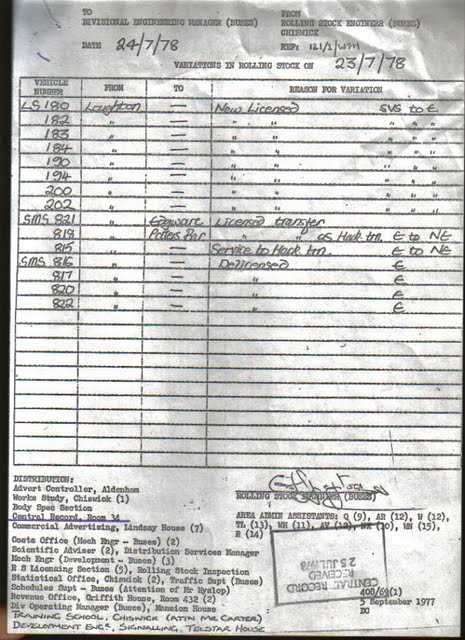 TO FROM
DIVISIONAL ENGINEERING MANAGER (BUSES) ROLLING STOCK ENGINEER (BUSES)
CHISWICK
DATE 24/7/78 REF: 121/1/WPH
VARIATIONS IN ROLLING STOCK ON 23/7/78
VEHICLE NUMBER FROM TO REASON FOR VARIATION
LS 180 Loughton — New Licensed SVS to E.
182 " — " " " " "
183 " — " " " " "
184 " — " " " " "
190 " — " " " " "
194 " — " " " " "
200 " — " " " " "
202 " — " " " " "
SMS 821 " Edgware Licensed transfer
819 " Potters Bar " " as Hack. trn. E to NE
815 " — Service to Hack. trn. E to NE
SMS 816 " — Delicensed E
817 " — " E
820 " — " E
822 " — " E
DISTRIBUTION:
Advert Controller, Aldenham
Works Study, Chiswick (1)
Body Spec Section
Central Record, Room 34
Commercial Advertising, Lindsay House (7)
Costs Office (Mech Engr - Buses) (2)
Scientific Adviser (2), Distribution Services Manager
Mech Engr (Development - Buses) (3)
R S Licensing Section (5), Rolling Stock Inspection
Statistical Office, Chiswick (2), Traffic Supt (Buses)
Schedules Supt - Buses (Attention of Mr Hyslop)
Revenue Office, Griffith House, Room 432 (2)
Div Operating Manager (Buses), Mansion House
TRAINING SCHOOL, CHISWICK (ATTN MR. CARTER)
DEVELOPMENT ENGR. SIGNALLING, TELSTAR HOUSE
ROLLING STOCK ENGINEER (BUSES)
AREA ADMIN ASSISTANTS: Q (9), AR (12), W (12),
TL (13), WH (11), AV (12), (10), HN (15),
R (14)
CENTRAL RECORD
25 JUL 1978
RECEIVED
408/69(1)
5 September 1977